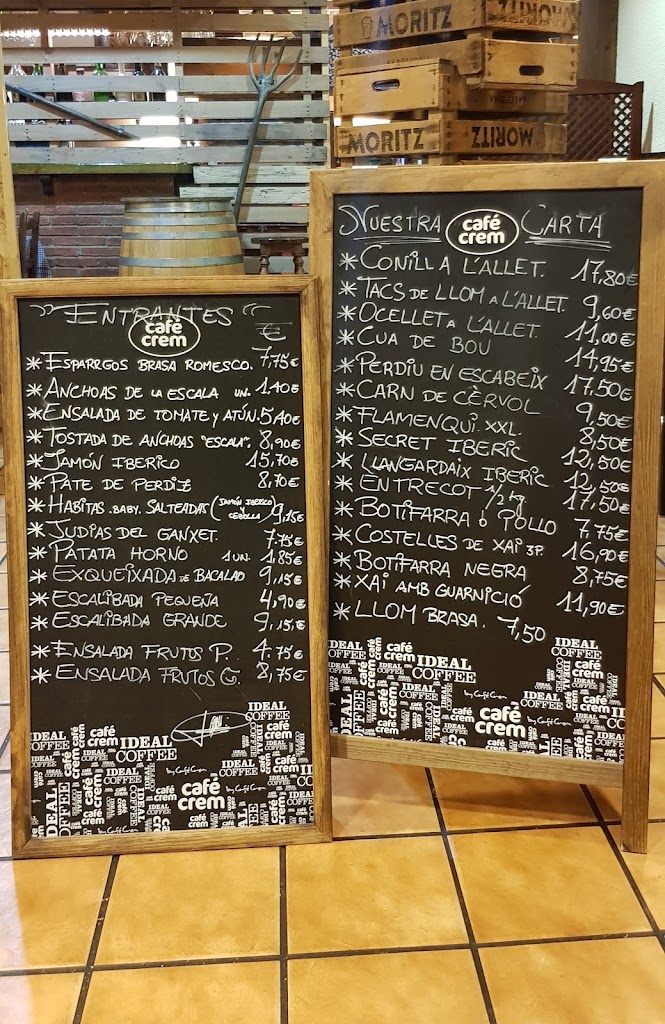 MORITZ
MORITZ
MORITZ
MORITZ
MORITZ
ENTRANTES
café
crem
€
* ESPARRGOS BRASA ROMESCO. 7,75€
* ANCHOAS DE LA ESCALA UN. 1,40€
* ENSALADA DE TOMATE Y ATÚN. 5,40€
* TOSTADA DE ANCHOAS "ESCALA". 8,90€
* JAMÓN IBERICO 15,70€
* PATE DE PERDIZ 8,70€
* HABITAS BABY. SALTEADAS (JAMÓN IBERICO Y CEBOLLA) 9,15€
* JUDIAS DEL GANXET. 7,75€
* PATATA HORNO 1 UN. 1,85€
* EXQUEIXADA DE BACALAO 9,15€
* ESCALIBADA PEQUEÑA 4,90€
* ESCALIBADA GRANDE 9,15€
* ENSALADA FRUTOS P. 4,75€
* ENSALADA FRUTOS G. 8,75€
IDEAL
COFFEE
café
crem
IDEAL
COFFEE
by Café Crem
café
crem
NUESTRA café crem CARTA
* CONILL A L'ALLET. 17,80€
* TACS DE LLOM A L'ALLET. 9,60€
* OCELLET A L'ALLET. 11,00€
* CUA DE BOU 14,95€
* PERDIU EN ESCABEIX 17,50€
* CARN DE CÈRVOL 9,50€
* FLAMENQUI. XXL. 8,50€
* SECRET IBERIC 12,50€
* LLANGARDAIX IBERIC 12,50€
* ENTRECOT 1/2 kg 17,50€
* BOTIFARRA Ó POLLO 7,75€
* COSTELLES DE XAI 3P. 16,90€
* BOTIFARRA NEGRA 8,75€
* XAI AMB GUARNICIÓ 11,90€
* LLOM BRASA. 7,50
IDEAL
COFFEE
café
crem
IDEAL
COFFEE
by Café Crem
café
crem